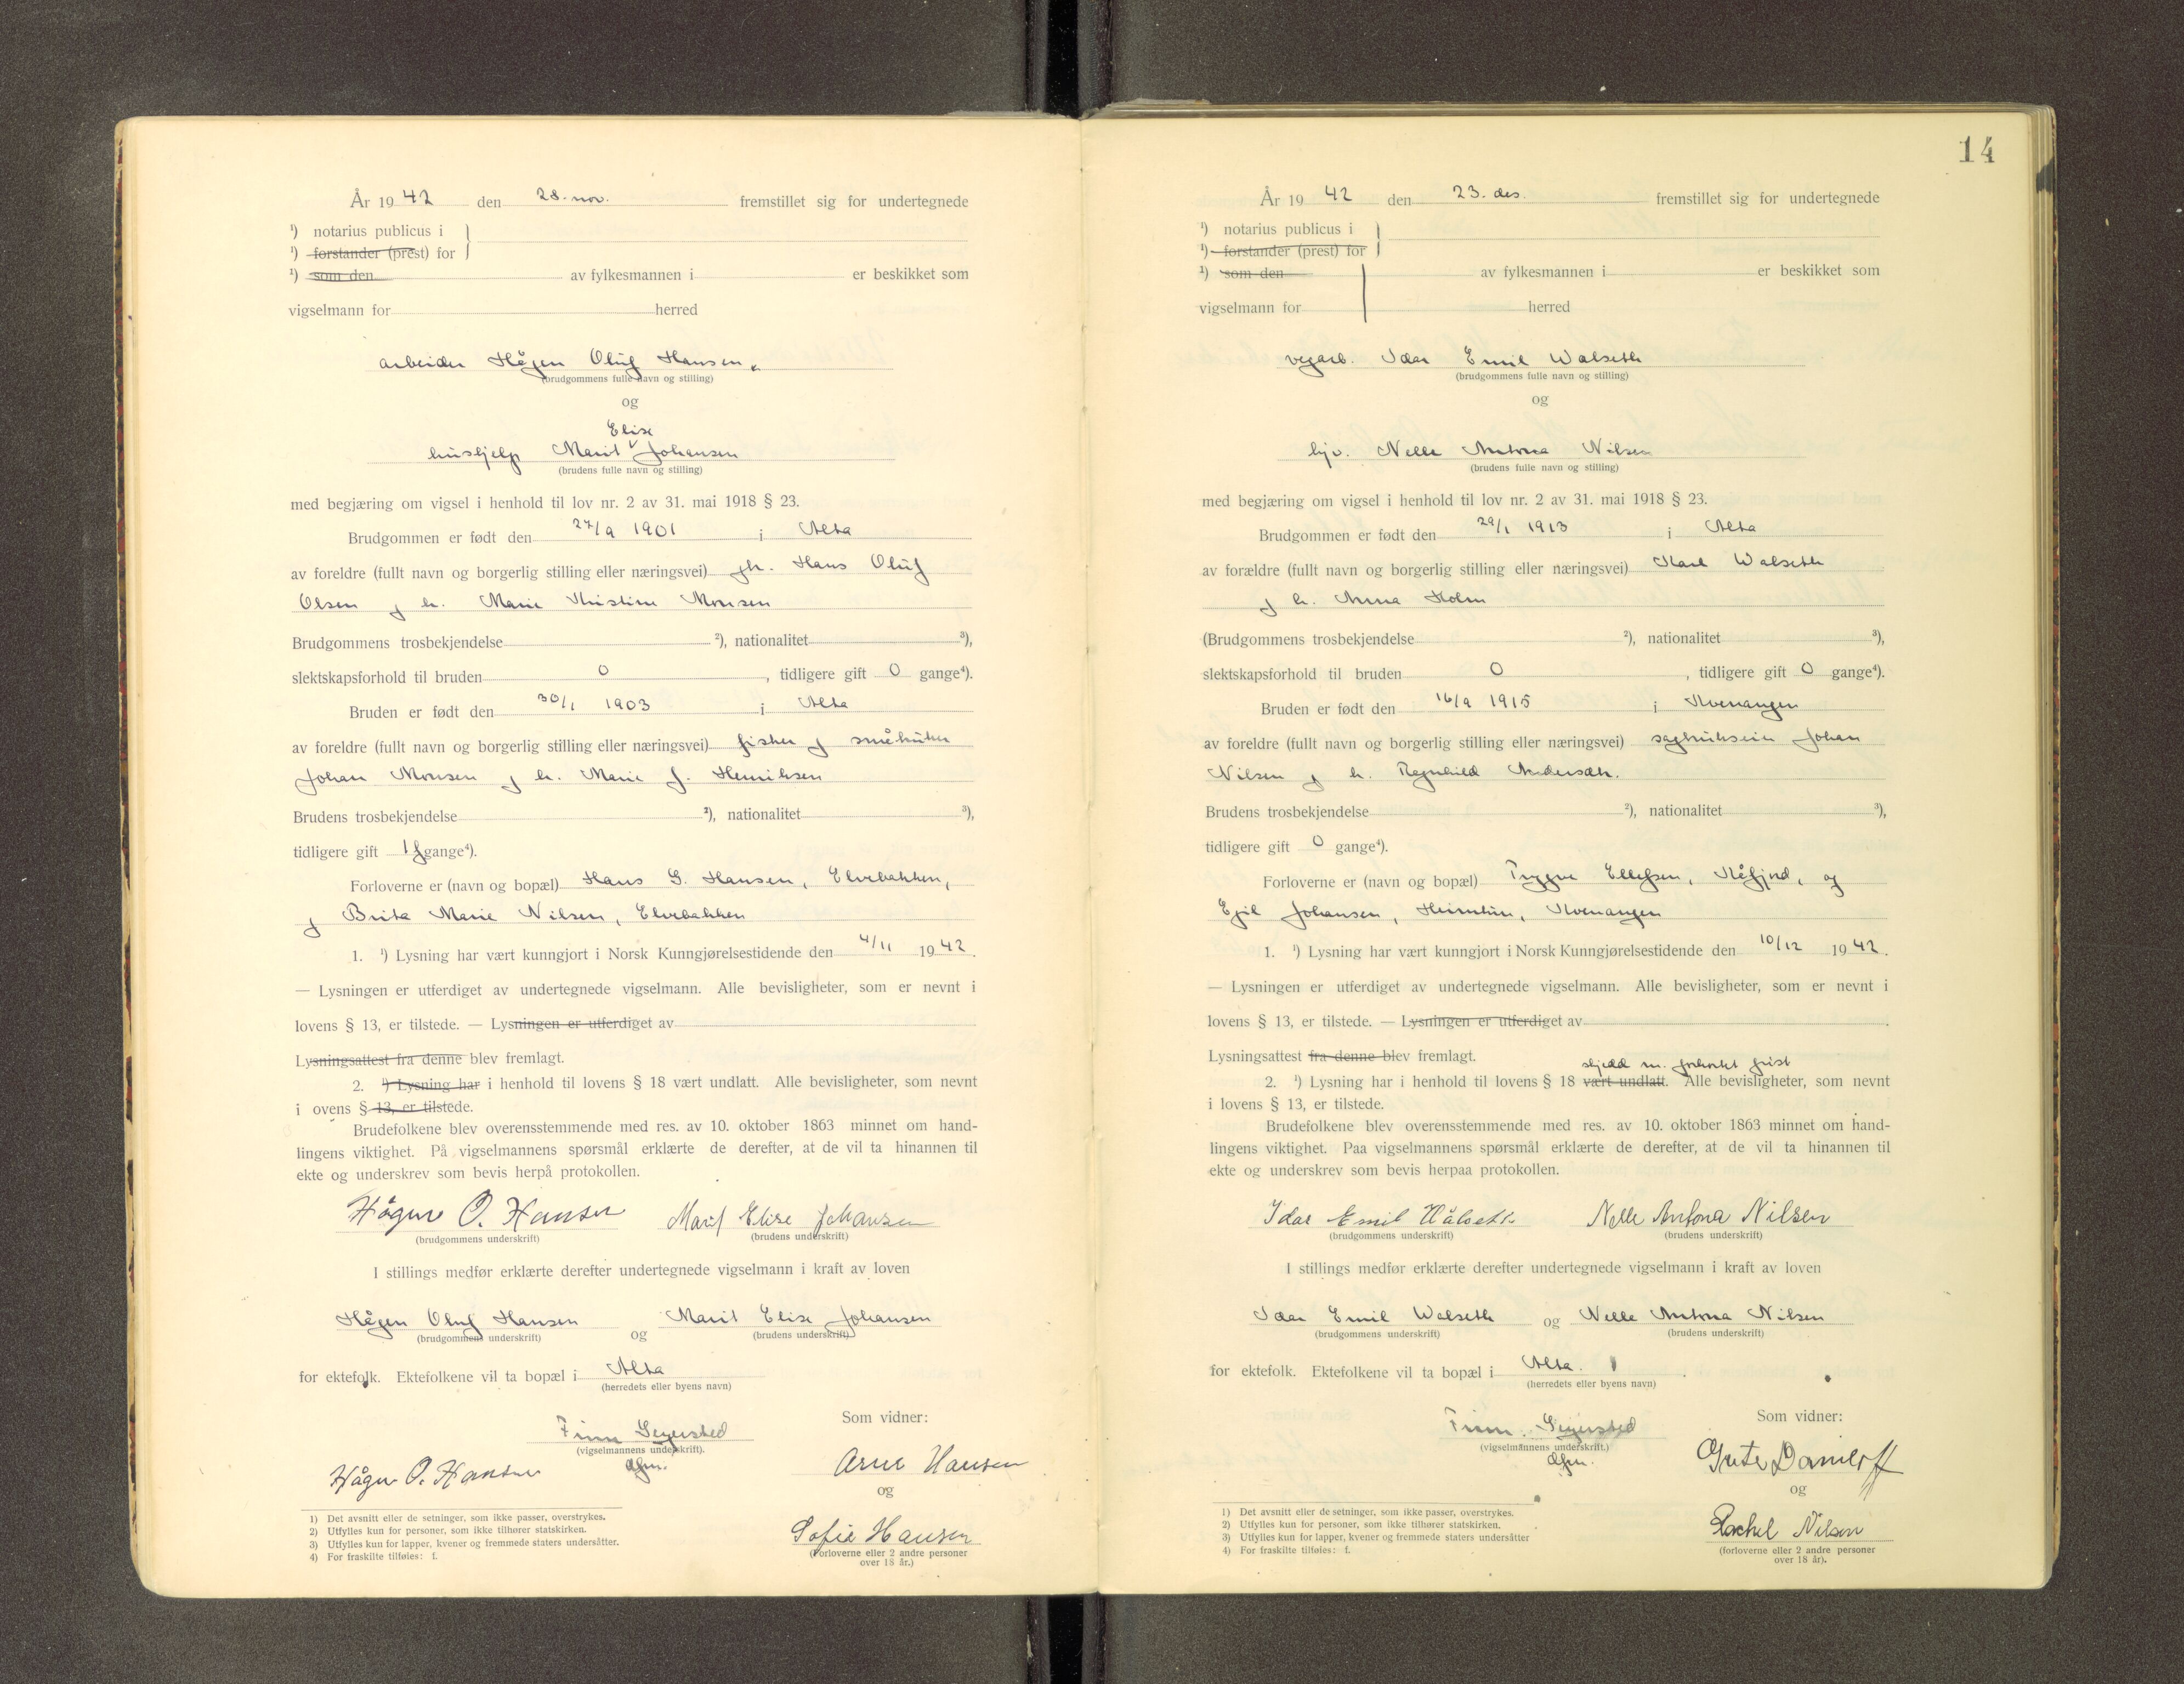 År 19 42 den 28. nov. fremstillet sig for undertegnede
¹) notarius publicus i
¹) forstander (prest) for
¹) som den av fylkesmannen i er beskikket som
vigselmann for herred
arbeider Hågen Oluf Hansen
(brudgommens fulle navn og stilling)
og
Elise
hushjelp Marit Johansen
(brudens fulle navn og stilling)
med begjæring om vigsel i henhold til lov nr. 2 av 31. mai 1918 § 23.
Brudgommen er født den 27/9 1901 i Alta
av foreldre (fullt navn og borgerlig stilling eller næringsvei) Hans Oluf
Olsen og h. Marie Kristine Monsen
Brudgommens trosbekjendelse ²), nationalitet ³),
slektskapsforhold til bruden 0, tidligere gift 0 gange⁴).
Bruden er født den 30/1 1903 i Alta
av foreldre (fullt navn og borgerlig stilling eller næringsvei) fisker og småbruker
Johan Monsen og h. Marie J. Henriksen
Brudens trosbekjendelse ²), nationalitet ³),
tidligere gift 1 f gange⁴).
Forloverne er (navn og bopæl) Hans G. Hansen, Elvebakken,
og Brita Marie Nilsen, Elvebakken
1. ¹) Lysning har vært kunngjort i Norsk Kunngjørelsestidende den 4/11 1942.
— Lysningen er utferdiget av undertegnede vigselmann. Alle bevisligheter, som er nevnt i
lovens § 13, er tilstede. — Lysningen er utferdiget av
Lysningsattest fra denne blev fremlagt.
2. ¹) Lysning har i henhold til lovens § 18 vært undlatt. Alle bevisligheter, som nevnt
i ovens § 13, er tilstede.
Brudefolkene blev overensstemmende med res. av 10. oktober 1863 minnet om hand-
lingens viktighet. På vigselmannens spørsmål erklærte de derefter, at de vil ta hinannen til
ekte og underskrev som bevis herpå protokollen.
Hågen O. Hansen Marit Elise Johansen
(brudgommens underskrift) (brudens underskrift)
I stillings medfør erklærte derefter undertegnede vigselmann i kraft av loven
Hågen Oluf Hansen og Marit Elise Johansen
(brudgommens underskrift) (brudens underskrift)
for ektefolk. Ektefolkene vil ta bopæl i Alta
(herredets eller byens navn)
Som vidner:
Finn Segersted
(vigselmannens underskrift).
dfm.
Hågen O. Hansen
Arne Hansen
og
Sofie Hansen
(Forloverne eller 2 andre personer
over 18 år.)
1) Det avsnitt eller de setninger, som ikke passer, overstrykes.
2) Utfylles kun for personer, som ikke tilhører statskirken.
3) Utfylles kun for lapper, kvener og fremmede staters undersåtter.
4) For fraskilte tilføies: f.
14
År 19 42 den 23. des. fremstillet sig for undertegnede
¹) notarius publicus i
¹) forstander (prest) for
¹) som den av fylkesmannen i er beskikket som
vigselmann for herred
vegarb. Idar Emil Walseth
(brudgommens fulle navn og stilling)
og
hjv. Nelle Antona Nilsen
(brudens fulle navn og stilling)
med begjæring om vigsel i henhold til lov nr. 2 av 31. mai 1918 § 23.
Brudgommen er født den 29/1 1913 i Alta
av forældre (fullt navn og borgerlig stilling eller næringsvei) Karl Walseth
og h. Anna Holm
(Brudgommens trosbekjendelse ²), nationalitet ³),
slektskapsforhold til bruden 0, tidligere gift 0 gange⁴).
Bruden er født den 16/9 1915 i Kvenangen
av foreldre (fullt navn og borgerlig stilling eller næringsvei) sagbrukseier Johan
Nilsen og h. Ragnhild Andersdtr.
Brudens trosbekjendelse ²), nationalitet ³),
tidligere gift 0 gange⁴).
Forloverne er (navn og bopæl) Trygve Ellefsen, Kåfjord, og
Egil Johansen, Kvenangen
1. ¹) Lysning har vært kunngjort i Norsk Kunngjørelsestidende den 10/12 1942.
— Lysningen er utferdiget av undertegnede vigselmann. Alle bevisligheter, som er nevnt i
lovens § 13, er tilstede. — Lysningen er utferdiget av
Lysningsattest fra denne blev fremlagt.
skjedd m. forkortet frist
2. ¹) Lysning har i henhold til lovens § 18 vært undlatt. Alle bevisligheter, som nevnt
i lovens § 13, er tilstede.
Brudefolkene blev overensstemmende med res. av 10. oktober 1863 minnet om hand-
lingens viktighet. Paa vigselmannens spørsmål erklærte de derefter, at de vil ta hinannen til
ekte og underskrev som bevis herpaa protokollen.
Idar Emil Walseth Nelle Antona Nilsen
(brudgommens underskrift) (brudens underskrift)
I stillings medfør erklærte derefter undertegnede vigselmann i kraft av loven
Idar Emil Walseth og Nelle Antona Nilsen
(brudgommens underskrift) (brudens underskrift)
for ektefolk. Ektefolkene vil ta bopæl i Alta.
(herredets eller byens navn)
Som vidner:
Finn Segersted
(vigselmannens underskrift.)
dfm.
Grete Daniloff
og
Rachel Nilsen
(forloverne eller 2 andre personer
over 18 år).
1) Det avsnitt eller de setninger, som ikke passer, overstrykes.
2) Utfylles kun for personer, som ikke tilhører statskirken.
3) Utfylles kun for lapper, kvener og fremmede staters undersåtter
4) For fraskilte tilføies: f.